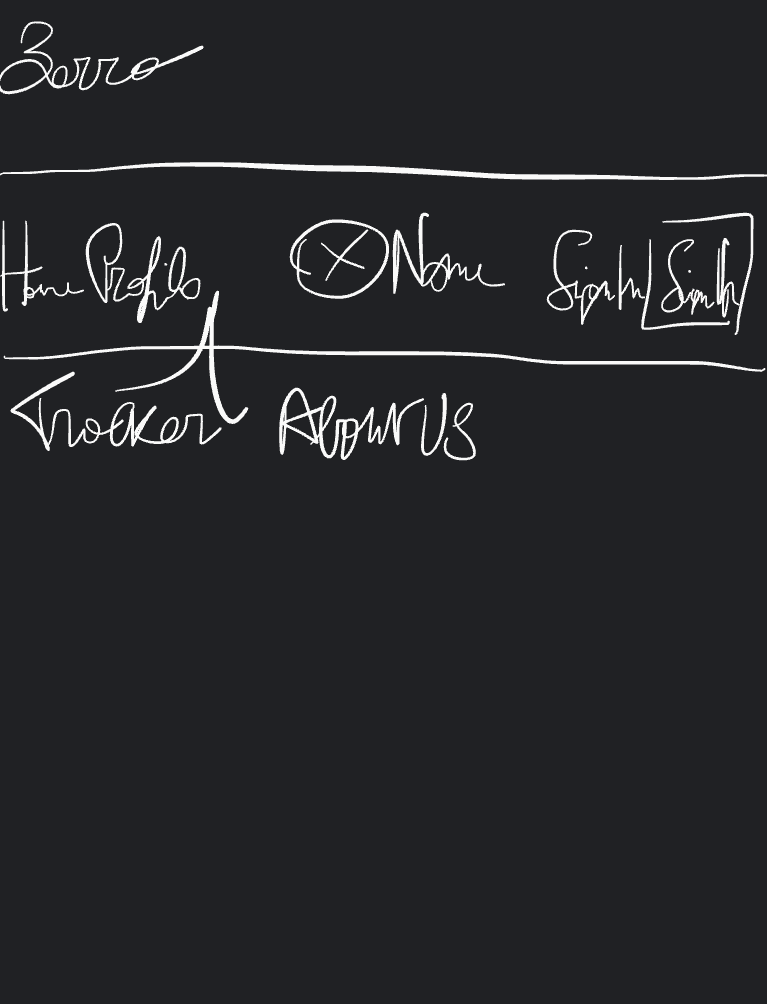 Zerro
Home Profile X Name Sign In Sign Up
Tracker About Us